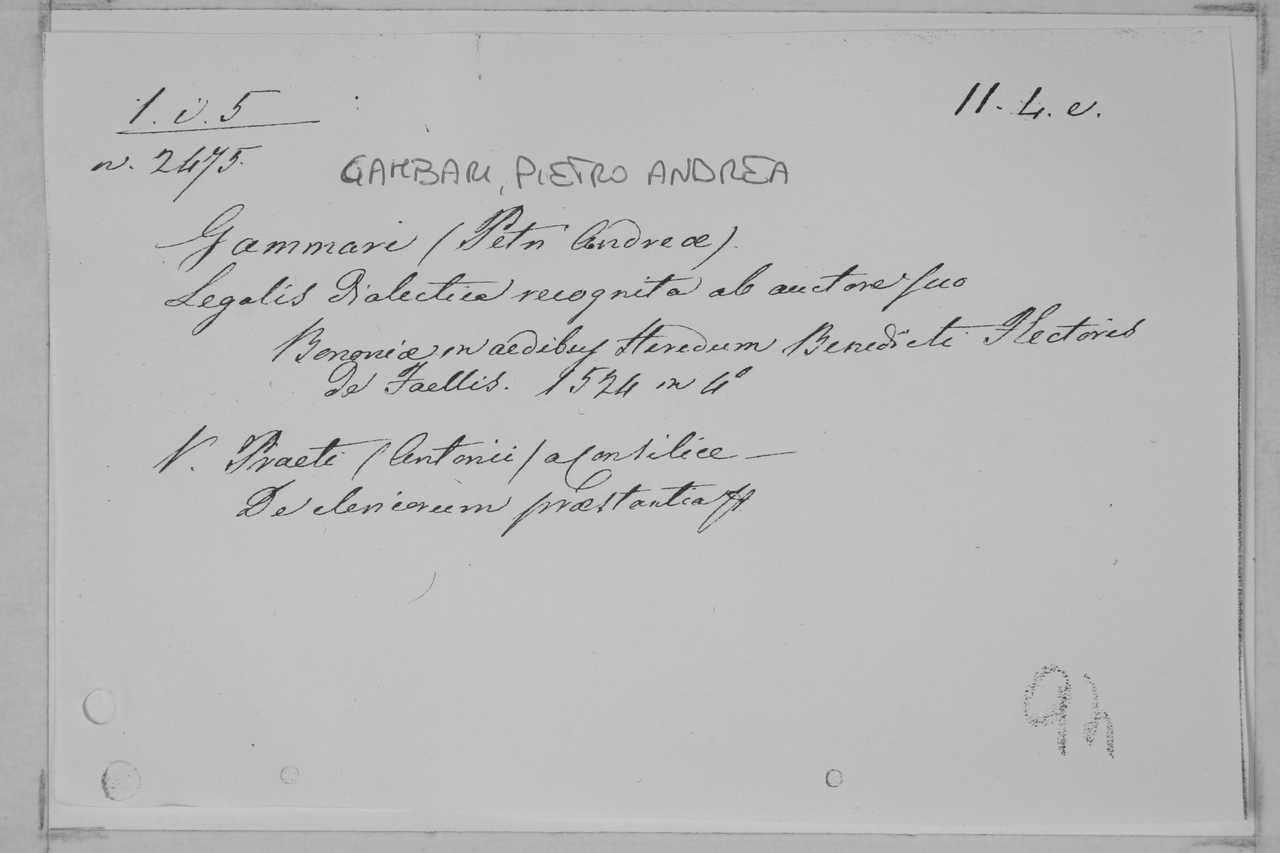 1. i. 5
11. 4. e.
n. 2475.
GAMBARI, PIETRO ANDREA
Gammari (Petri Andreæ).
Legalis Dialectica recognita ab auctore suo
Bononiæ in aedibus Heredum Benedicti Hectoris
De Faellis. 1524 in 4°
V. Praeti (Antonii) a Consilice —
De clericorum præstantia